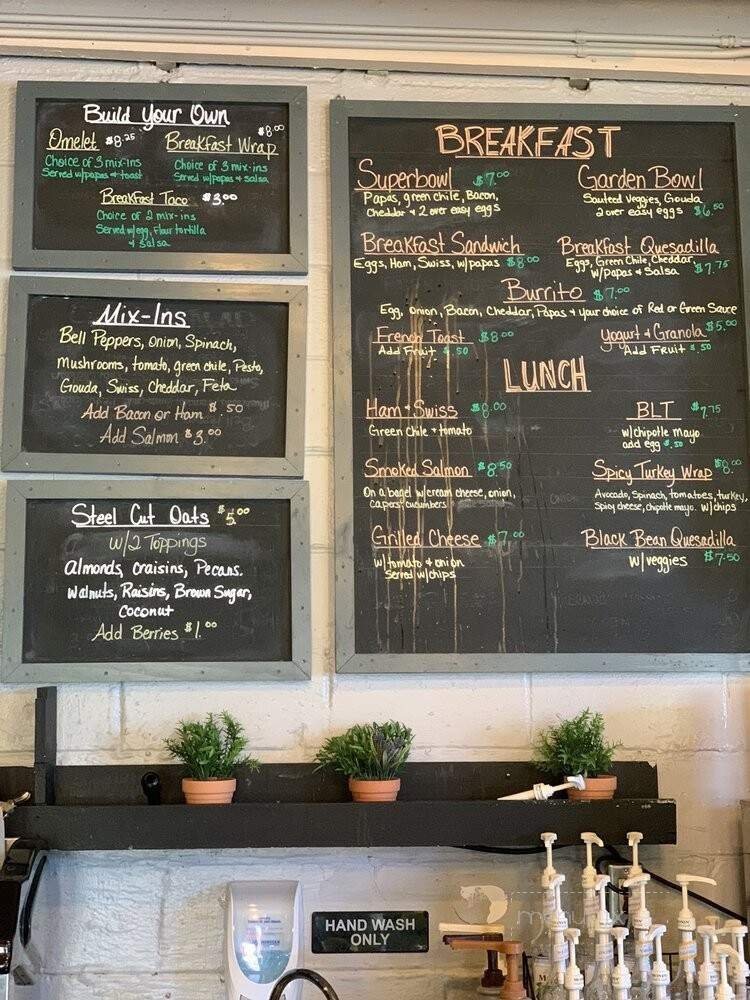 Build Your Own
Omelet $8.25
Choice of 3 mix-ins
Served w/papas + toast
Breakfast Wrap $8.00
Choice of 3 mix-ins
Served w/papas + salsa
Breakfast Taco $3.00
Choice of 2 mix-ins
Served w/egg, flour tortilla
+ salsa
Mix-Ins
Bell Peppers, onion, Spinach,
mushrooms, tomato, green chile, Pesto,
Gouda, Swiss, Cheddar, Feta
Add Bacon or Ham $.50
Add Salmon $3.00
Steel Cut Oats $5.00
w/2 Toppings
almonds, craisins, Pecans.
walnuts, Raisins, Brown Sugar,
Coconut
Add Berries $1.00
BREAKFAST
Superbowl $7.00
Papas, green chile, Bacon,
Cheddar + 2 over easy eggs
Garden Bowl
Sauteed Veggies, Gouda
2 over easy eggs $6.50
Breakfast Sandwich
Eggs, Ham, Swiss, w/papas $8.00
Breakfast Quesadilla
Eggs, Green Chile, Cheddar,
w/Papas + Salsa $7.75
Burrito $7.00
Egg, Onion, Bacon, Cheddar, Papas + your choice of Red or Green Sauce
French Toast $8.00
Add Fruit $.50
Yogurt + Granola $5.00
Add Fruit $.50
LUNCH
Ham + Swiss $8.00
Green Chile + tomato
BLT $7.75
w/chipotle mayo
add egg $.50
Smoked Salmon $8.50
On a bagel w/cream cheese, onion,
capers + cucumbers
Spicy Turkey Wrap $8.00
Avocado, Spinach, tomatoes, turkey,
Spicy cheese, chipotle mayo. w/chips
Grilled Cheese $7.00
w/tomato + onion
Served w/chips
Black Bean Quesadilla
w/veggies $7.50
HAND WASH
ONLY